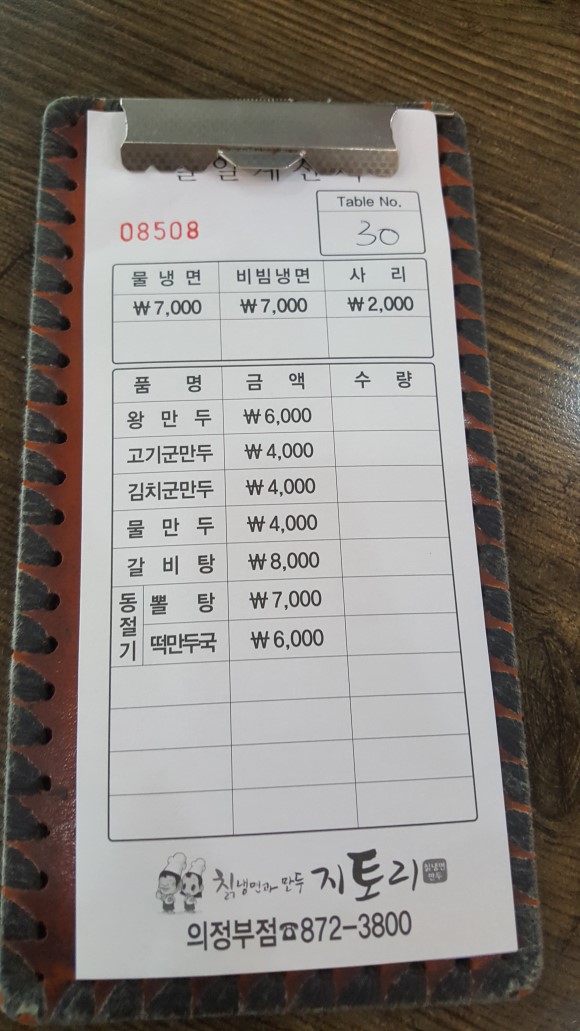 Table No.
08508
30
물냉면 비빔냉면 사리
₩7,000 ₩7,000 ₩2,000
품명 금액 수량
왕만두 ₩6,000
고기군만두 ₩4,000
김치군만두 ₩4,000
물만두 ₩4,000
갈비탕 ₩8,000
동절기 뽈탕 ₩7,000
떡만두국 ₩6,000
칡냉면과 만두 지토리 칡냉면 만두
의정부점☎872-3800